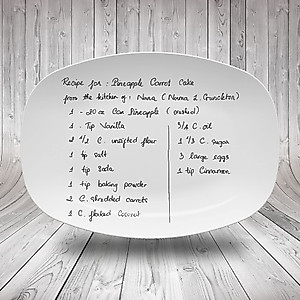 Recipe for : Pineapple Carrot Cake
from the kitchen of : Nana ( Norma L. Crunckton)
1 - 20 oz Can Pineapple ( crushed)
1 . Tip Vanilla
2 1/2 C. unsifted flour
1 tip salt
1 tip Soda
1 tip baking powder
2 C. shredded carrots
1 C. flaked Coconut
3/4 C. oil
1 3/4 C. sugar
3 large eggs
1 tip Cinnamon